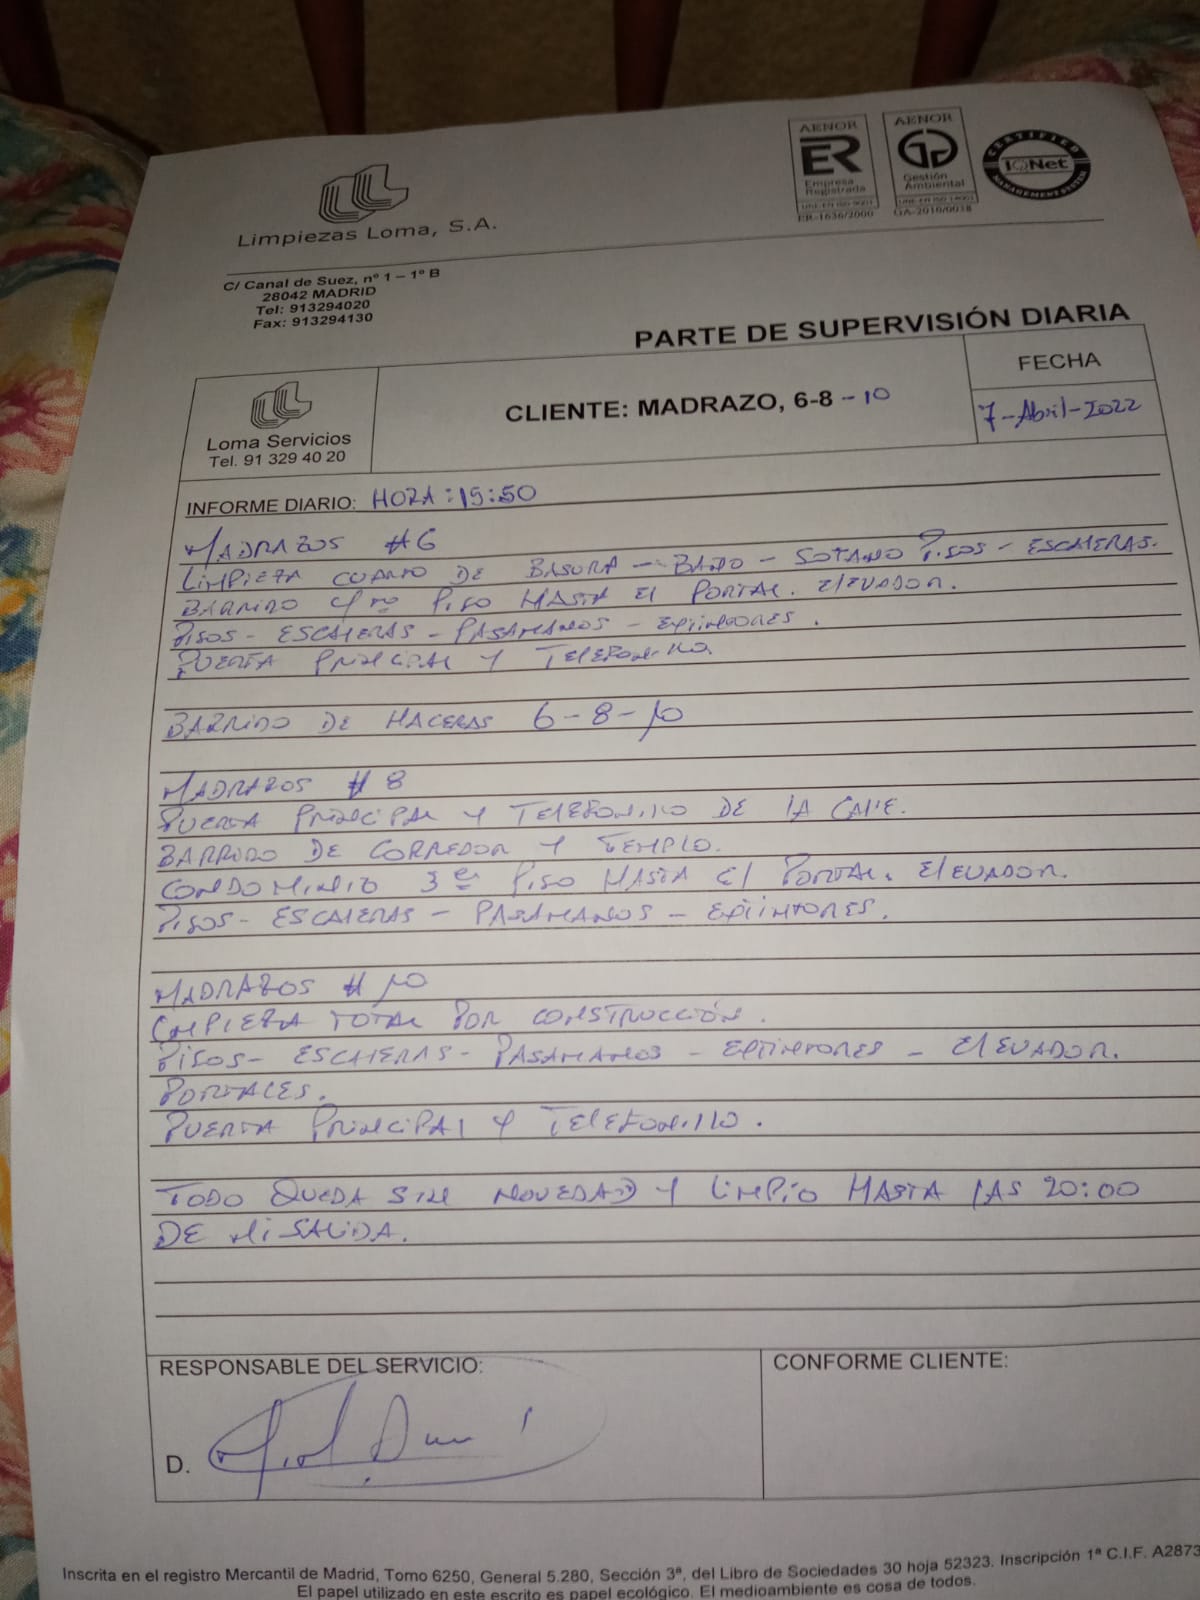 Limpiezas Loma, S.A.
AENOR
ER
Empresa
Registrada
UNE-EN ISO 9001
ER-1636/2000
AENOR
Gestión
Ambiental
UNE-EN ISO 14001
GA-2010/0038
CERTIFIED
IQNet
MANAGEMENT SYSTEM
C/ Canal de Suez, nº 1 – 1º B
28042 MADRID
Tel: 913294020
Fax: 913294130
PARTE DE SUPERVISIÓN DIARIA
Loma Servicios
Tel. 91 329 40 20
CLIENTE: MADRAZO, 6-8 - 10
FECHA
7-Abril-2022
INFORME DIARIO: HORA: 15:50
MADRAZOS #6
LIMPIEZA CUARTO DE BASURA - BAÑO - SOTANO PISOS - ESCALERAS.
BARRIDO 4to PISO HASTA El PORTAL. ElEVADOR.
PISOS - ESCALERAS - PASAMANOS - EXTINTORES.
PUERTA PRINCIPAL Y TELEFONILLO.
BARRIDO DE HACERAS 6-8-10
MADRAZOS #8
PUERTA PRINCIPAL Y TELEFONILLO DE LA CALLE.
BARRIDO DE CORREDOR Y TEMPLO.
CONDOMINIO 3er PISO HASTA El PORTAL. ElEVADOR.
PISOS - ESCALERAS - PASAMANOS - EXTINTORES.
MADRAZOS #10
LIMPIEZA TOTAL POR CONSTRUCCIÓN.
PISOS - ESCALERAS - PASAMANOS - EXTINTORES - ElEVADOR.
PORTALES.
PUERTA PRINCIPAL Y TELEFONILLO.
TODO QUEDA SIN NOVEDAD Y LIMPIO HASTA LAS 20:00
DE MI SALIDA.
RESPONSABLE DEL SERVICIO:
CONFORME CLIENTE:
D.
Inscrita en el registro Mercantil de Madrid, Tomo 6250, General 5.280, Sección 3ª, del Libro de Sociedades 30 hoja 52323. Inscripción 1ª C.I.F. A2873
El papel utilizado en este escrito es papel ecológico. El medioambiente es cosa de todos.